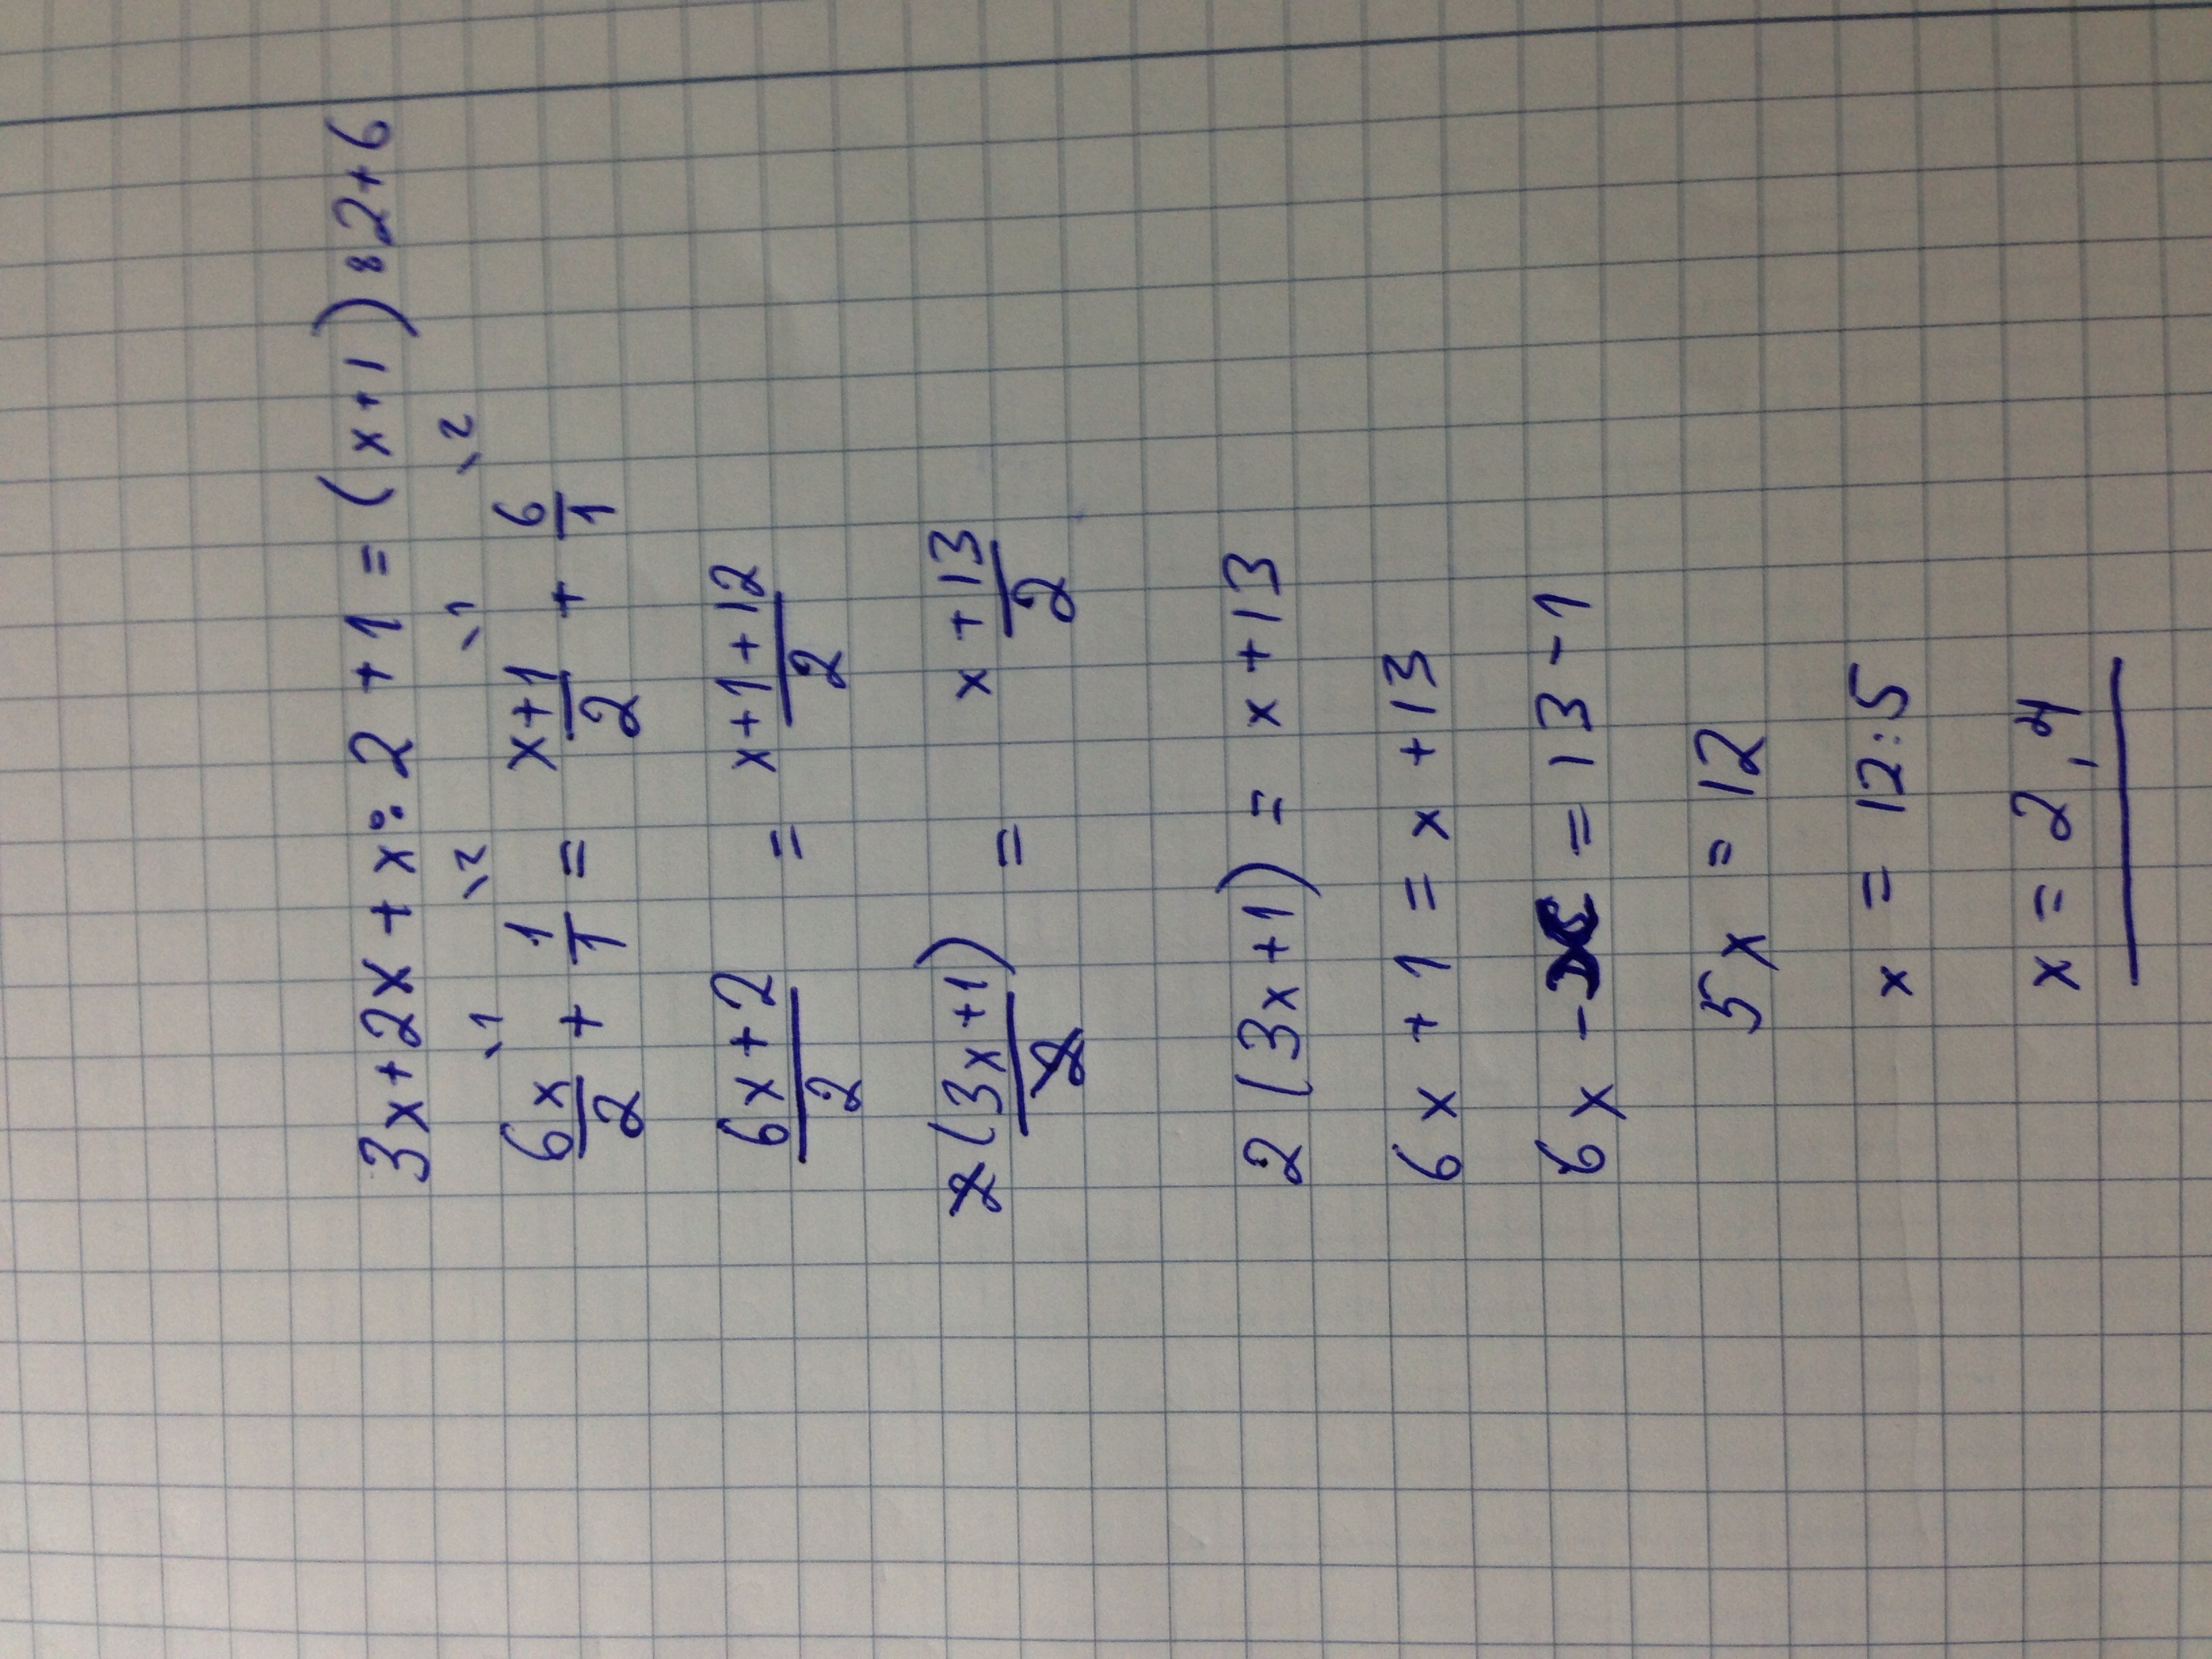 3x+2x+x:2+1=(x+1):2+6
\1 \2 \1 \2
6x/2 + 1/1 = x+1/2 + 6/1
6x+2/2 = x+1+12/2
2(3x+1)/2 = x+13/2
2(3x+1) = x+13
6x+1=x+13
6x-x=13-1
5x=12
x=12:5
x=2,4